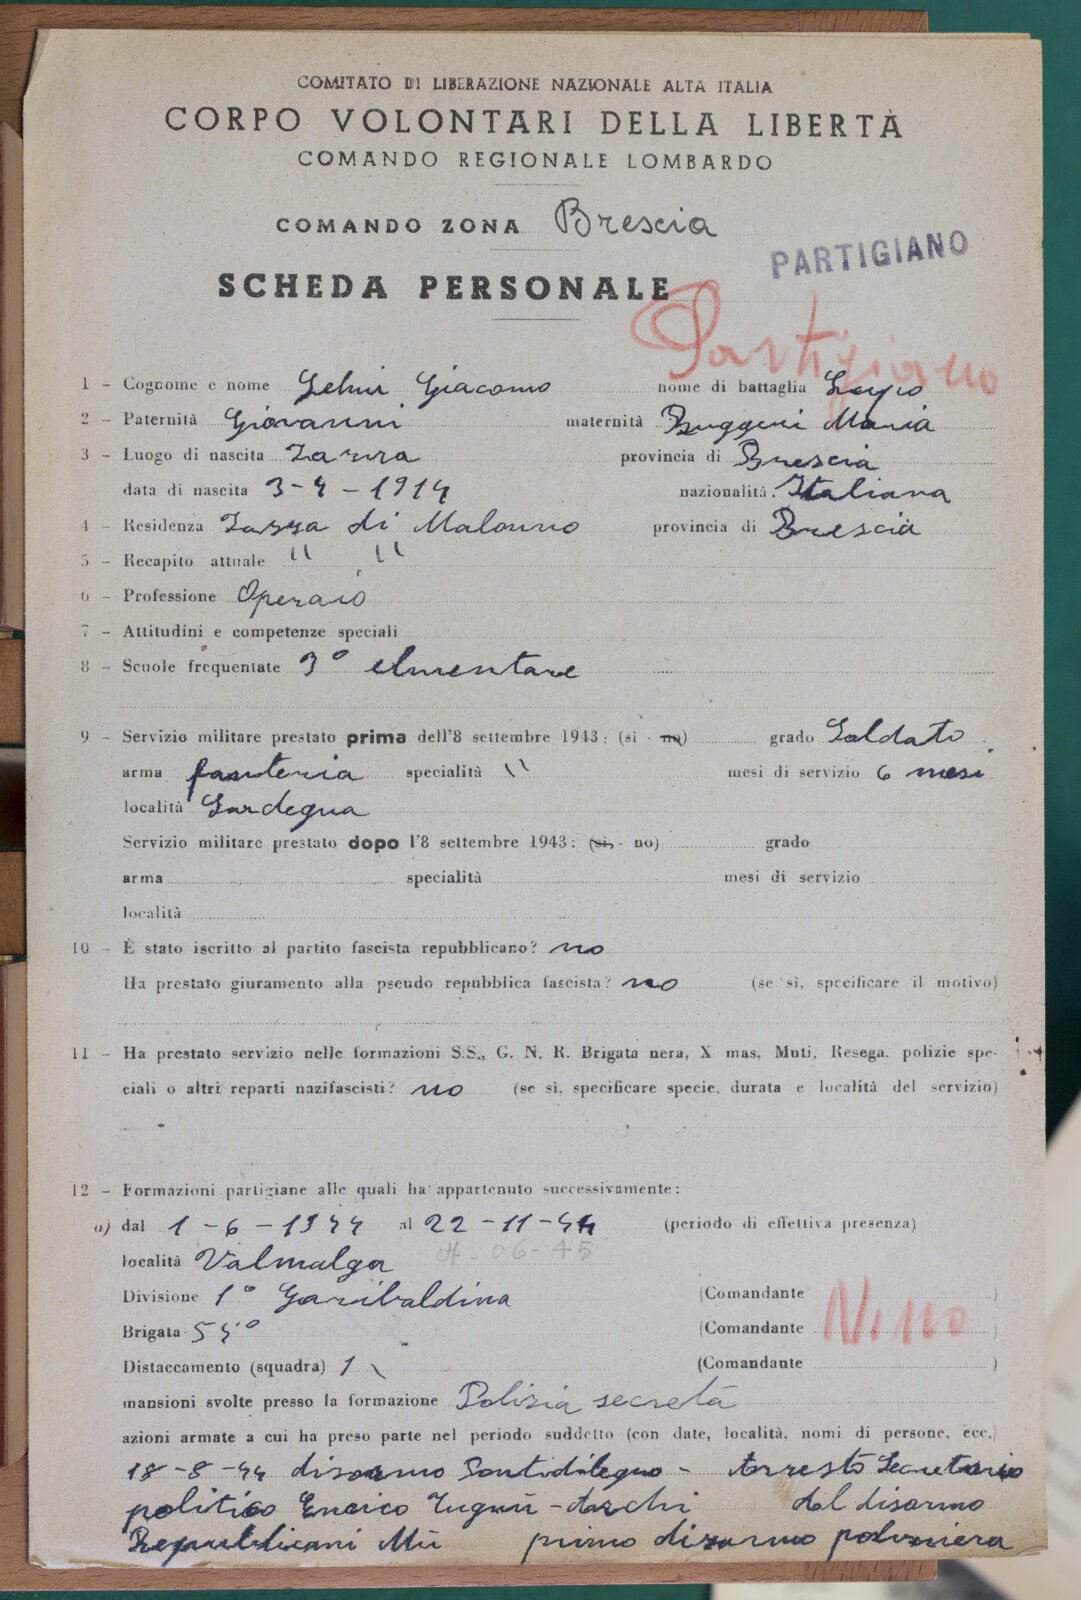 COMITATO DI LIBERAZIONE NAZIONALE ALTA ITALIA
CORPO VOLONTARI DELLA LIBERTÀ
COMANDO REGIONALE LOMBARDO
COMANDO ZONA Brescia
PARTIGIANO
SCHEDA PERSONALE
Partigiano
1 - Cognome e nome Giacomo nome di battaglia
2 - Paternità Giovanni maternità Ruggeri Maria
3 - Luogo di nascita Zazza provincia di Brescia
data di nascita 3-4-1914 nazionalità. Italiana
4 - Residenza Zazza di Malonno provincia di Brescia
5 - Recapito attuale " "
6 - Professione Operaio
7 - Attitudini e competenze speciali
8 - Scuole frequentate 3° elmentare
9 - Servizio militare prestato prima dell'8 settembre 1943: (sì - no) grado Soldato
arma fanteria specialità " mesi di servizio 6 mesi
località Sardegna
Servizio militare prestato dopo l'8 settembre 1943: (sì, - no) grado
arma specialità mesi di servizio
località
10 - È stato iscritto al partito fascista repubblicano? no
Ha prestato giuramento alla pseudo repubblica fascista? no (se sì, specificare il motivo)
11 - Ha prestato servizio nelle formazioni S.S., G. N. R. Brigata nera, X mas, Muti, Resega, polizie spe-
ciali o altri reparti nazifascisti? no (se sì, specificare specie, durata e località del servizio)
12 - Formazioni partigiane alle quali ha appartenuto successivamente:
a) dal 1-6-1944 al 22-11-44 (periodo di effettiva presenza)
località Valmalga 06-45
Divisione 1° Garibaldina (Comandante )
Brigata 54° (Comandante Nino )
Distaccamento (squadra) 1 (Comandante )
mansioni svolte presso la formazione Polizia secreta
azioni armate a cui ha preso parte nel periodo suddetto (con date, località, nomi di persone, ecc.)
18-8-44 disarmo Pontedilegno - Arresto Secretario
politico Enrico dal disarmo
Republicani Mù primo disarmo polveriera